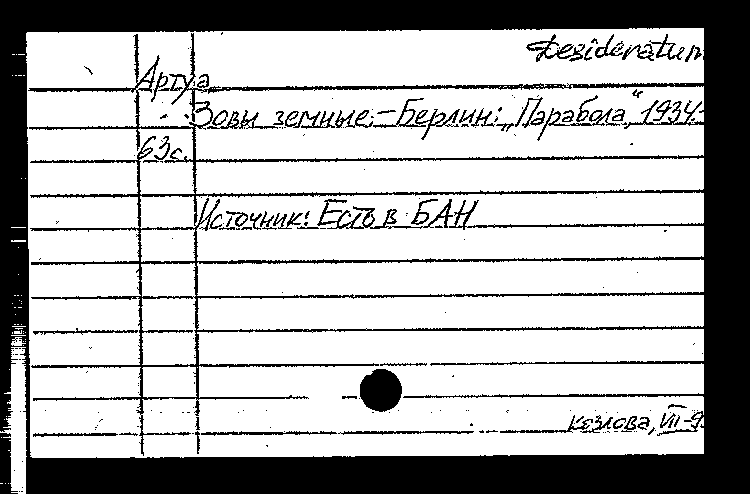 Desideratum
Артуа
Зовы земные.—Берлин: „Парабола“, 1934.—
63с.
Источник: Есть в БАН
Козлова, VII-9